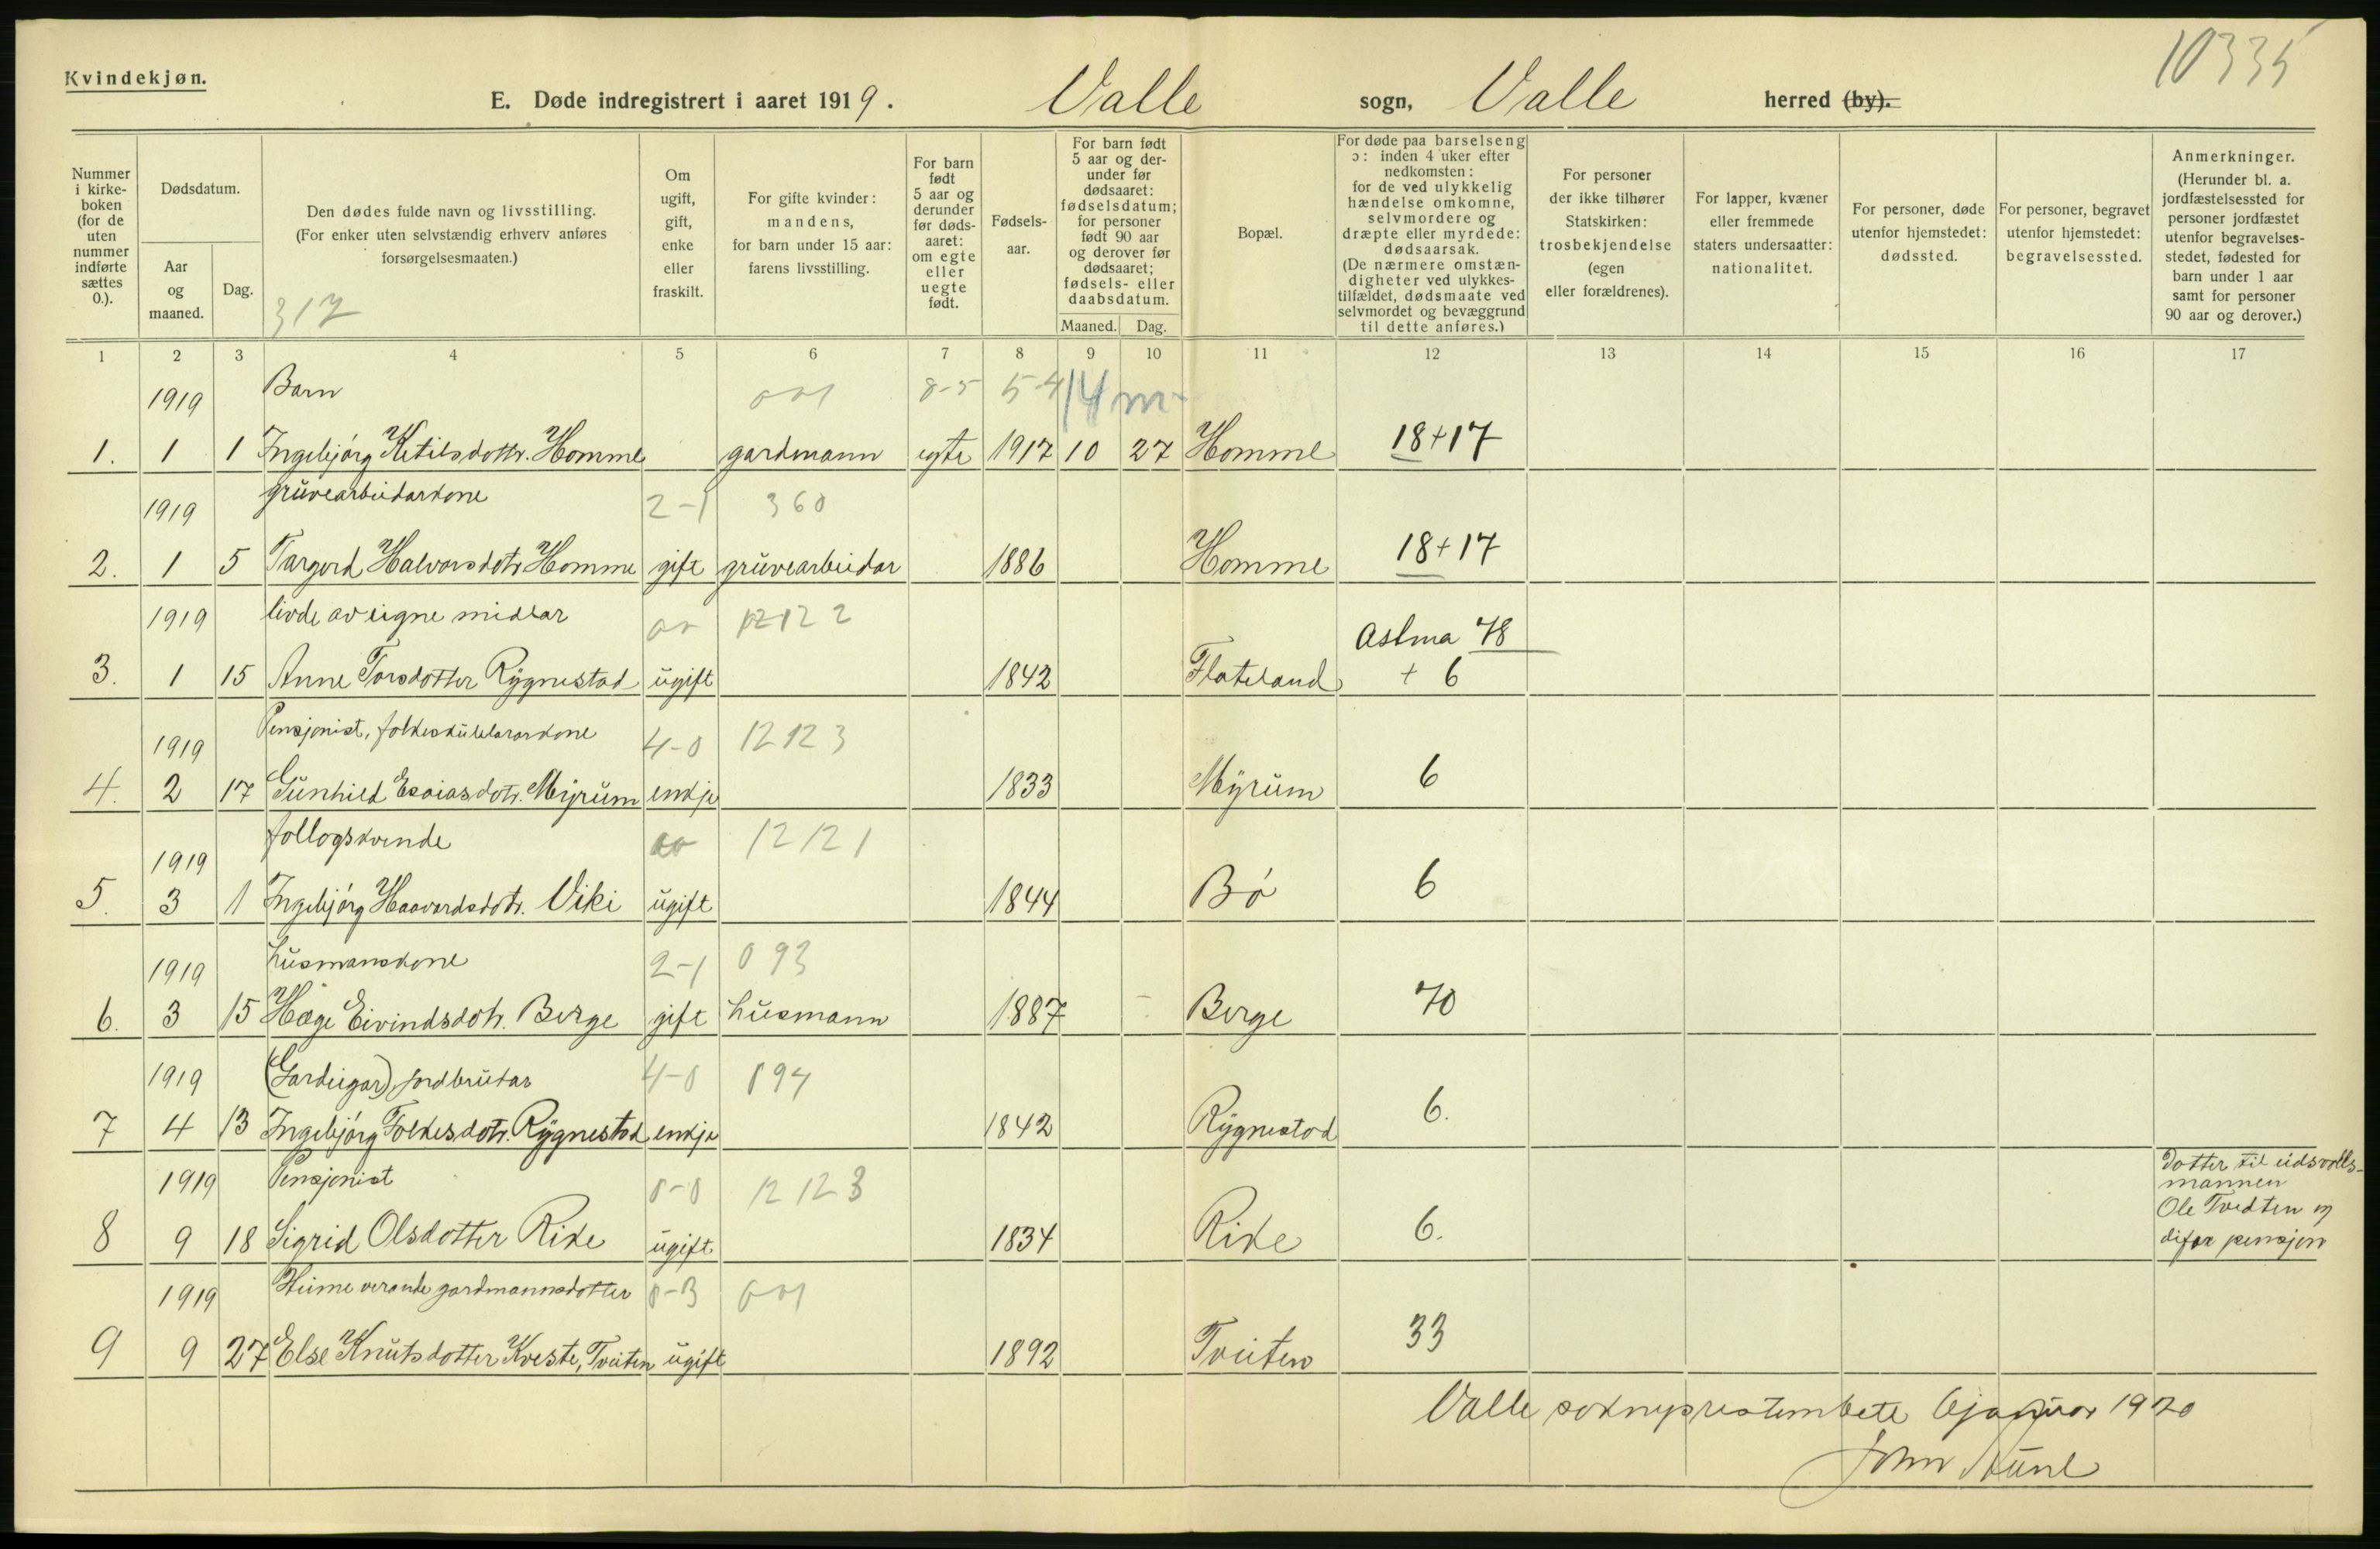 10335
Kvindekjøn.
E. Døde indregistrert i aaret 1919. Valle sogn, Valle herred (by).
Nummer i kirke- boken (for de uten nummer indførte sættes 0.).
Dødsdatum.
Aar og maaned.
Dag.
Den dødes fulde navn og livsstilling.
(For enker uten selvstændig erhverv anføres
forsørgelsesmaaten.)
317
Om ugift, gift, enke eller fraskilt.
For gifte kvinder:
mandens,
for barn under 15 aar:
farens livsstilling.
For barn født 5 aar og derunder før døds- aaret: om egte eller uegte født.
Fødsels- aar.
For barn født 5 aar og der- under før dødsaaret: fødselsdatum; for personer født 90 aar og derover før dødsaaret; fødsels- eller daabsdatum.
Maaned. Dag.
Bopæl.
For døde paa barselseng
ɔ: inden 4 uker efter
nedkomsten:
for de ved ulykkelig
hændelse omkomne,
selvmordere og
dræpte eller myrdede:
dødsaarsak.
(De nærmere omstæn-
digheter ved ulykkes-
tilfældet, dødsmaate ved
selvmordet og bevæggrund
til dette anføres.)
For personer
der ikke tilhører
Statskirken:
trosbekjendelse
(egen
eller forældrenes).
For lapper, kvæner
eller fremmede
staters undersaatter:
nationalitet.
For personer, døde
utenfor hjemstedet:
dødssted.
For personer, begravet
utenfor hjemstedet:
begravelsessted.
Anmerkninger.
(Herunder bl. a.
jordfæstelsessted for
personer jordfæstet
utenfor begravelses-
stedet, fødested for
barn under 1 aar
samt for personer
90 aar og derover.)
1 2 3 4 5 6 7 8 9 10 11 12 13 14 15 16 17
1919 Barn 8-5 5-4 14 m
1. 1 1 Ingebjórg Ketilsdottr. Homme gardmann egte 1917 10 27 Homme 18+17
1919 grüvearbeidarkone 2-1 360
2. 1 5 Targerd Halvorsdotr Homme gift grüvearbeidar 1886 Homme 18+17
1919 livde av eigne midlar 12122
3. 1 15 Anne Torsdotter Rygnestad ugift 1842 Flateland Astma 78 + 6
1919 Pensjonist, folkeskülelararkone 4-0 12123
4. 2 17 Günhild Esaiasdotr. Myrüm enkje 1833 Myrüm 6
1919 follogskvende 12121
5. 3 1 Ingebjórg Haavardsdotr. Viki ugift 1844 Bó 6
1919 husmanskone 2-1 093
6. 3 15 Hæge Eivindsdotr. Berge gift husmann 1887 Berge 70
1919 (Gardeigar), jordbrukar 4-0 094
7 4 13 Ingebjórg Folkesdotr. Rygnestad enkje 1842 Rygnestad 6.
1919 Pensjonist 0-0 12123
8 9 18 Sigrid Olsdotter Rike ugift 1834 Rike 6.
Dotter til eidsvolls-
mannen
Ole Tvedten og
difor pensjon
1919 Heime verande gardmannsdotter 0-3
9 9 27 Else Knütsdotter Kveste, Tveiten ugift 1892 Tveiten 33
Valle soknepresetembete 6 januar 1920
John Aune